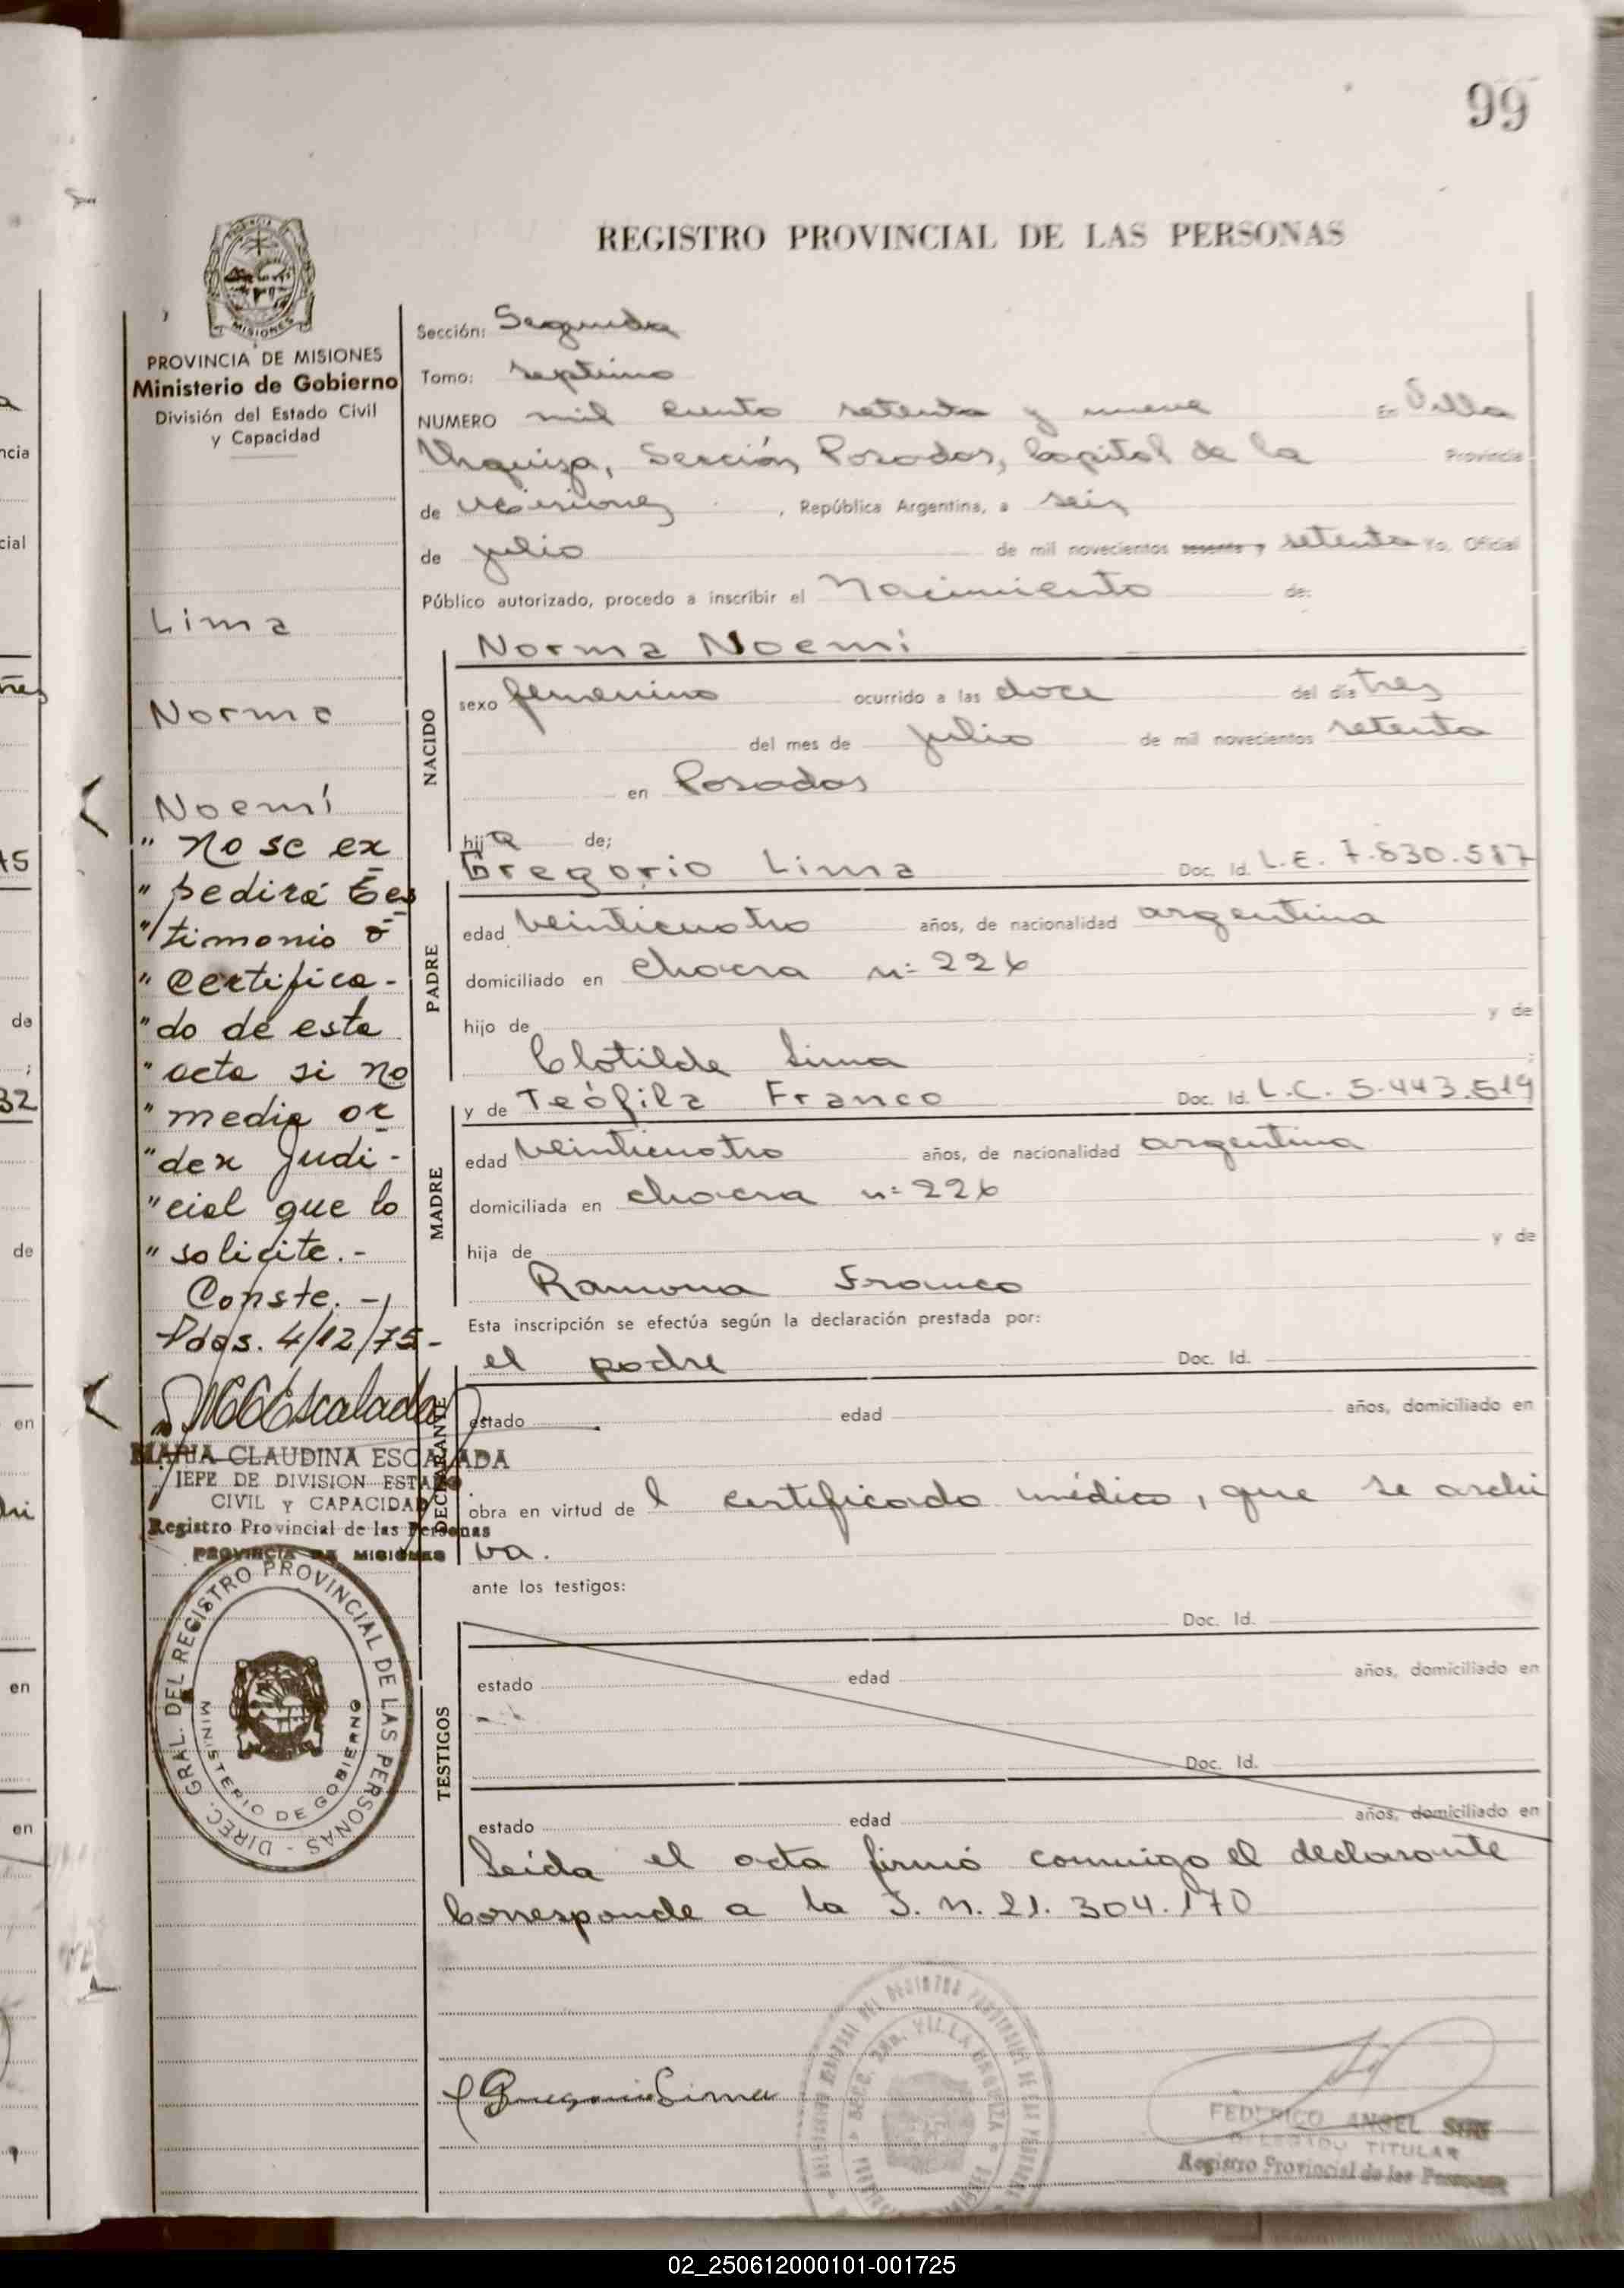 99
REGISTRO PROVINCIAL DE LAS PERSONAS
MISIONES
PROVINCIA DE MISIONES
Ministerio de Gobierno
División del Estado Civil
y Capacidad
Lima
Norma
Noemí
" No se ex
" pedirá tes
" timonio ó
" certifica-
" do de esta
" acta si no
" media or
" den judi-
" cial que lo
" solicite.-
Conste.-
Pdas. 4/12/75-
MCEscalada
MARIA CLAUDINA ESCALADA
JEFE DE DIVISION ESTADO
CIVIL Y CAPACIDAD
Registro Provincial de las Personas
PROVINCIA DE MISIONES
DIREC. GRAL. DEL REGISTRO PROVINCIAL DE LAS PERSONAS -
MINISTERIO DE GOBIERNO
Sección: Segunda
Tomo: septimo
NUMERO mil ciento setenta y nueve En Villa
Urquiza, Sección Posadas, Capital de la Provincia
de Misiones, República Argentina, a seis
de julio de mil novecientos sesenta y setenta Yo, Oficial
Público autorizado, procedo a inscribir el Nacimiento de:
NACIDO
Norma Noemí
sexo femenino ocurrido a las doce del día tres
del mes de julio de mil novecientos setenta
en Posadas
hija de;
Gregorio Lima Doc. Id. L.E. 7.830.587
PADRE
edad veinticuatro años, de nacionalidad argentina
domiciliado en chacra n= 226
hijo de y de
Clotilde Lima ;
y de Teófila Franco Doc. Id. L.C. 5.443.519
MADRE
edad veinticuatro años, de nacionalidad argentina
domiciliada en chacra n= 226
hija de y de
Ramona Franco
Esta inscripción se efectúa según la declaración prestada por:
el padre Doc. Id.
DECLARANTE
estado edad años, domiciliado en
obra en virtud de l certificado médico, que se archi
va.
ante los testigos:
Doc. Id.
TESTIGOS
estado edad años, domiciliado en
Doc. Id.
estado edad años, domiciliado en
Leída el acta firmó conmigo el declarante
Corresponde a la I. N. 21. 304.170
Gregorio Lima
VILLA URQUIZA
FEDERICO ANGEL
DELEGADO TITULAR
Registro Provincial de las Personas
ncia
cial
de
32
de
en
en
en
02_250612000101-001725